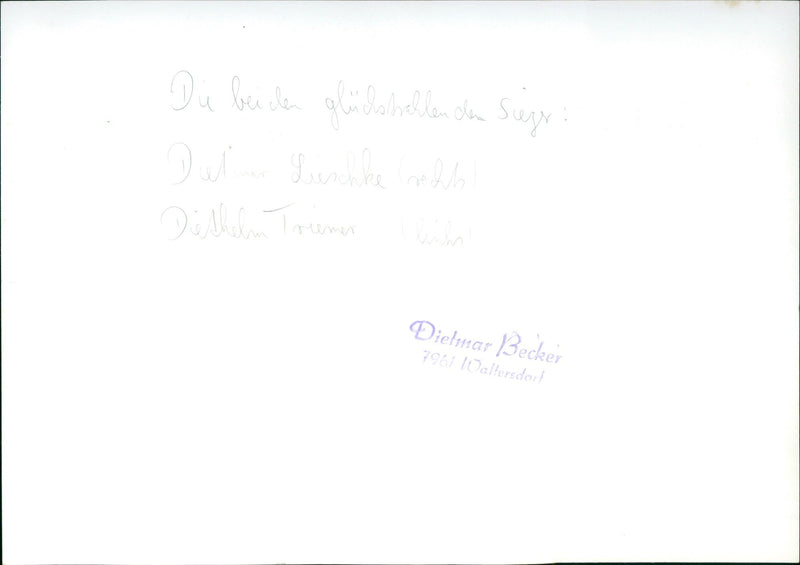 Die beiden glückstrahlenden Sieger:
Dietmar Lieschke (rechts)
Diethelm Triemer (links)
Dietmar Becker
7961 Waltersdorf